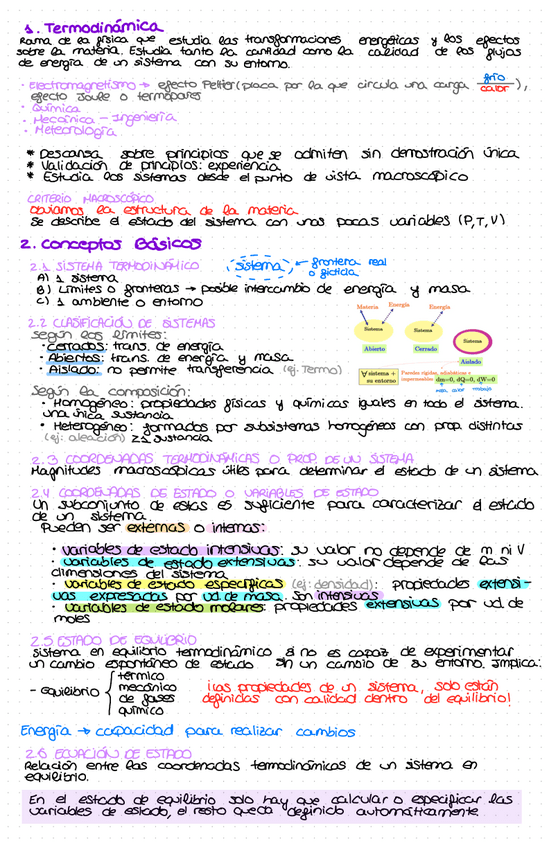 1. Termodinámica
Rama de la física que estudia las transformaciones energéticas y los efectos
sobre la materia. Estudia tanto la cantidad como la calidad de los flujos
de energía de un sistema con su entorno.
· Electromagnetismo → efecto Peltier (placa por la que circula una carga frío/calor),
efecto Joule o termopares
· Química
· Mecánica - Ingeniería
· Meteorología
* Descansa sobre principios que se admiten sin demostración única
* Validación de principios: experiencia
* Estudia los sistemas desde el punto de vista macroscópico
CRITERIO MACROSCÓPICO
Obviamos la estructura de la materia
Se describe el estado del sistema con unas pocas variables (P,T,V)
2. Conceptos Básicos
2.1 SISTEMA TERMODINÁMICO
sistema ← frontera real
o ficticia
A) 1 sistema
B) Límites o fronteras → posible intercambio de energía y masa
C) 1 ambiente o entorno
2.2 CLASIFICACIÓN DE SISTEMAS
Según los límites:
· Cerrados: trans. de energía
· Abiertos: trans. de energía y masa
· Aislado: no permite transferencia (ej: Termo)
Materia Energía Energía
Sistema Sistema Sistema
Abierto Cerrado Aislado
∀ sistema +
su entorno
Paredes rígidas, adiabáticas e
impermeables dm=0, dQ=0, dW=0
masa calor trabajo
Según la composición:
· Homogéneo: propiedades físicas y químicas iguales en todo el sistema.
una única sustancia
· Heterogéneo: formados por subsistemas homogéneos con prop. distintas
(ej: aleación) ≥2 sustancia
2.3 COORDENADAS TERMODINÁMICAS O PROP. DE UN SISTEMA
Magnitudes macroscópicas útiles para determinar el estado de un sistema.
2.4 COORDENADAS DE ESTADO O VARIABLES DE ESTADO
Un subconjunto de estas es suficiente para caracterizar el estado
de un sistema.
Pueden ser externas o internas:
· Variables de estado intensivas: su valor no depende de m ni V
· Variables de estado extensivas: su valor depende de las
dimensiones del sistema
· Variables de estado específicas (ej: densidad): propiedades extensi-
vas expresadas por ud. de masa. Son intensivas
· Variables de estado molares: propiedades extensivas por ud. de
moles
2.5 ESTADO DE EQUILIBRIO
Sistema en equilibrio termodinámico si no es capaz de experimentar
un cambio espontáneo de estado sin un cambio de su entorno. Implica:
- equilibrio { térmico
mecánico
de fases
químico
¡Las propiedades de un sistema, solo están
definidas con calidad dentro del equilibrio!
Energía → capacidad para realizar cambios
2.6 ECUACIÓN DE ESTADO
Relación entre las coordenadas termodinámicas de un sistema en
equilibrio.
En el estado de equilibrio solo hay que calcular o especificar las
variables de estado, el resto queda definido automáticamente